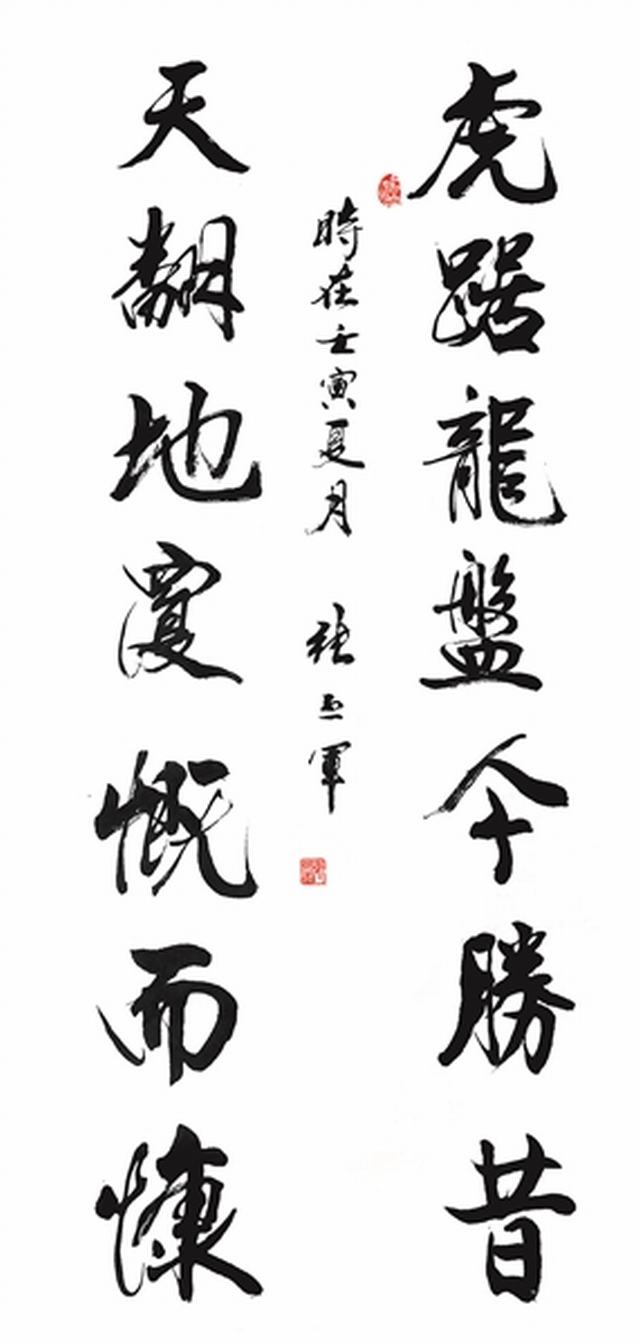 虎踞龍盤今勝昔
天翻地覆慨而慷
時在壬寅夏月 張軍